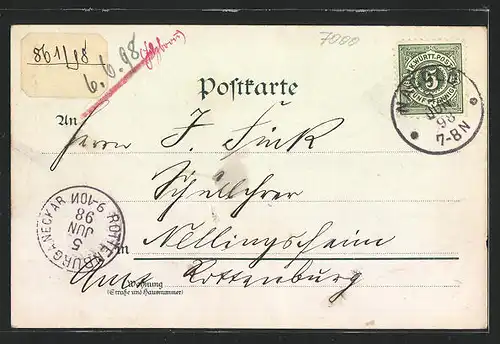 861/98
6.6.98
7000
K. WÜRTT. POST
5
FÜNF PFENNIG
NA
JUN
98
7-8N
Postkarte
An
Herrn J. Fink
Schullehrer
in Nellingsheim
Amt Rottenburg
Wohnung
(Straße und Hausnummer)
ROTTENBURG A. NECKAR
5
JUN
98
9-10N